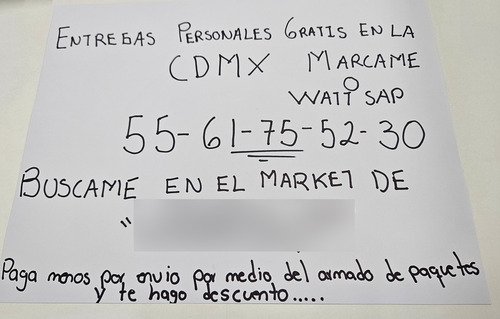 ENTREGAS PERSONALES GRATIS EN LA
CDMX MARCAME
WATTSAP
55-61-75-52-30
BUSCAME EN EL MARKET DE
"
Paga menos por envio por medio del armado de paquetes
y te hago descuento.....